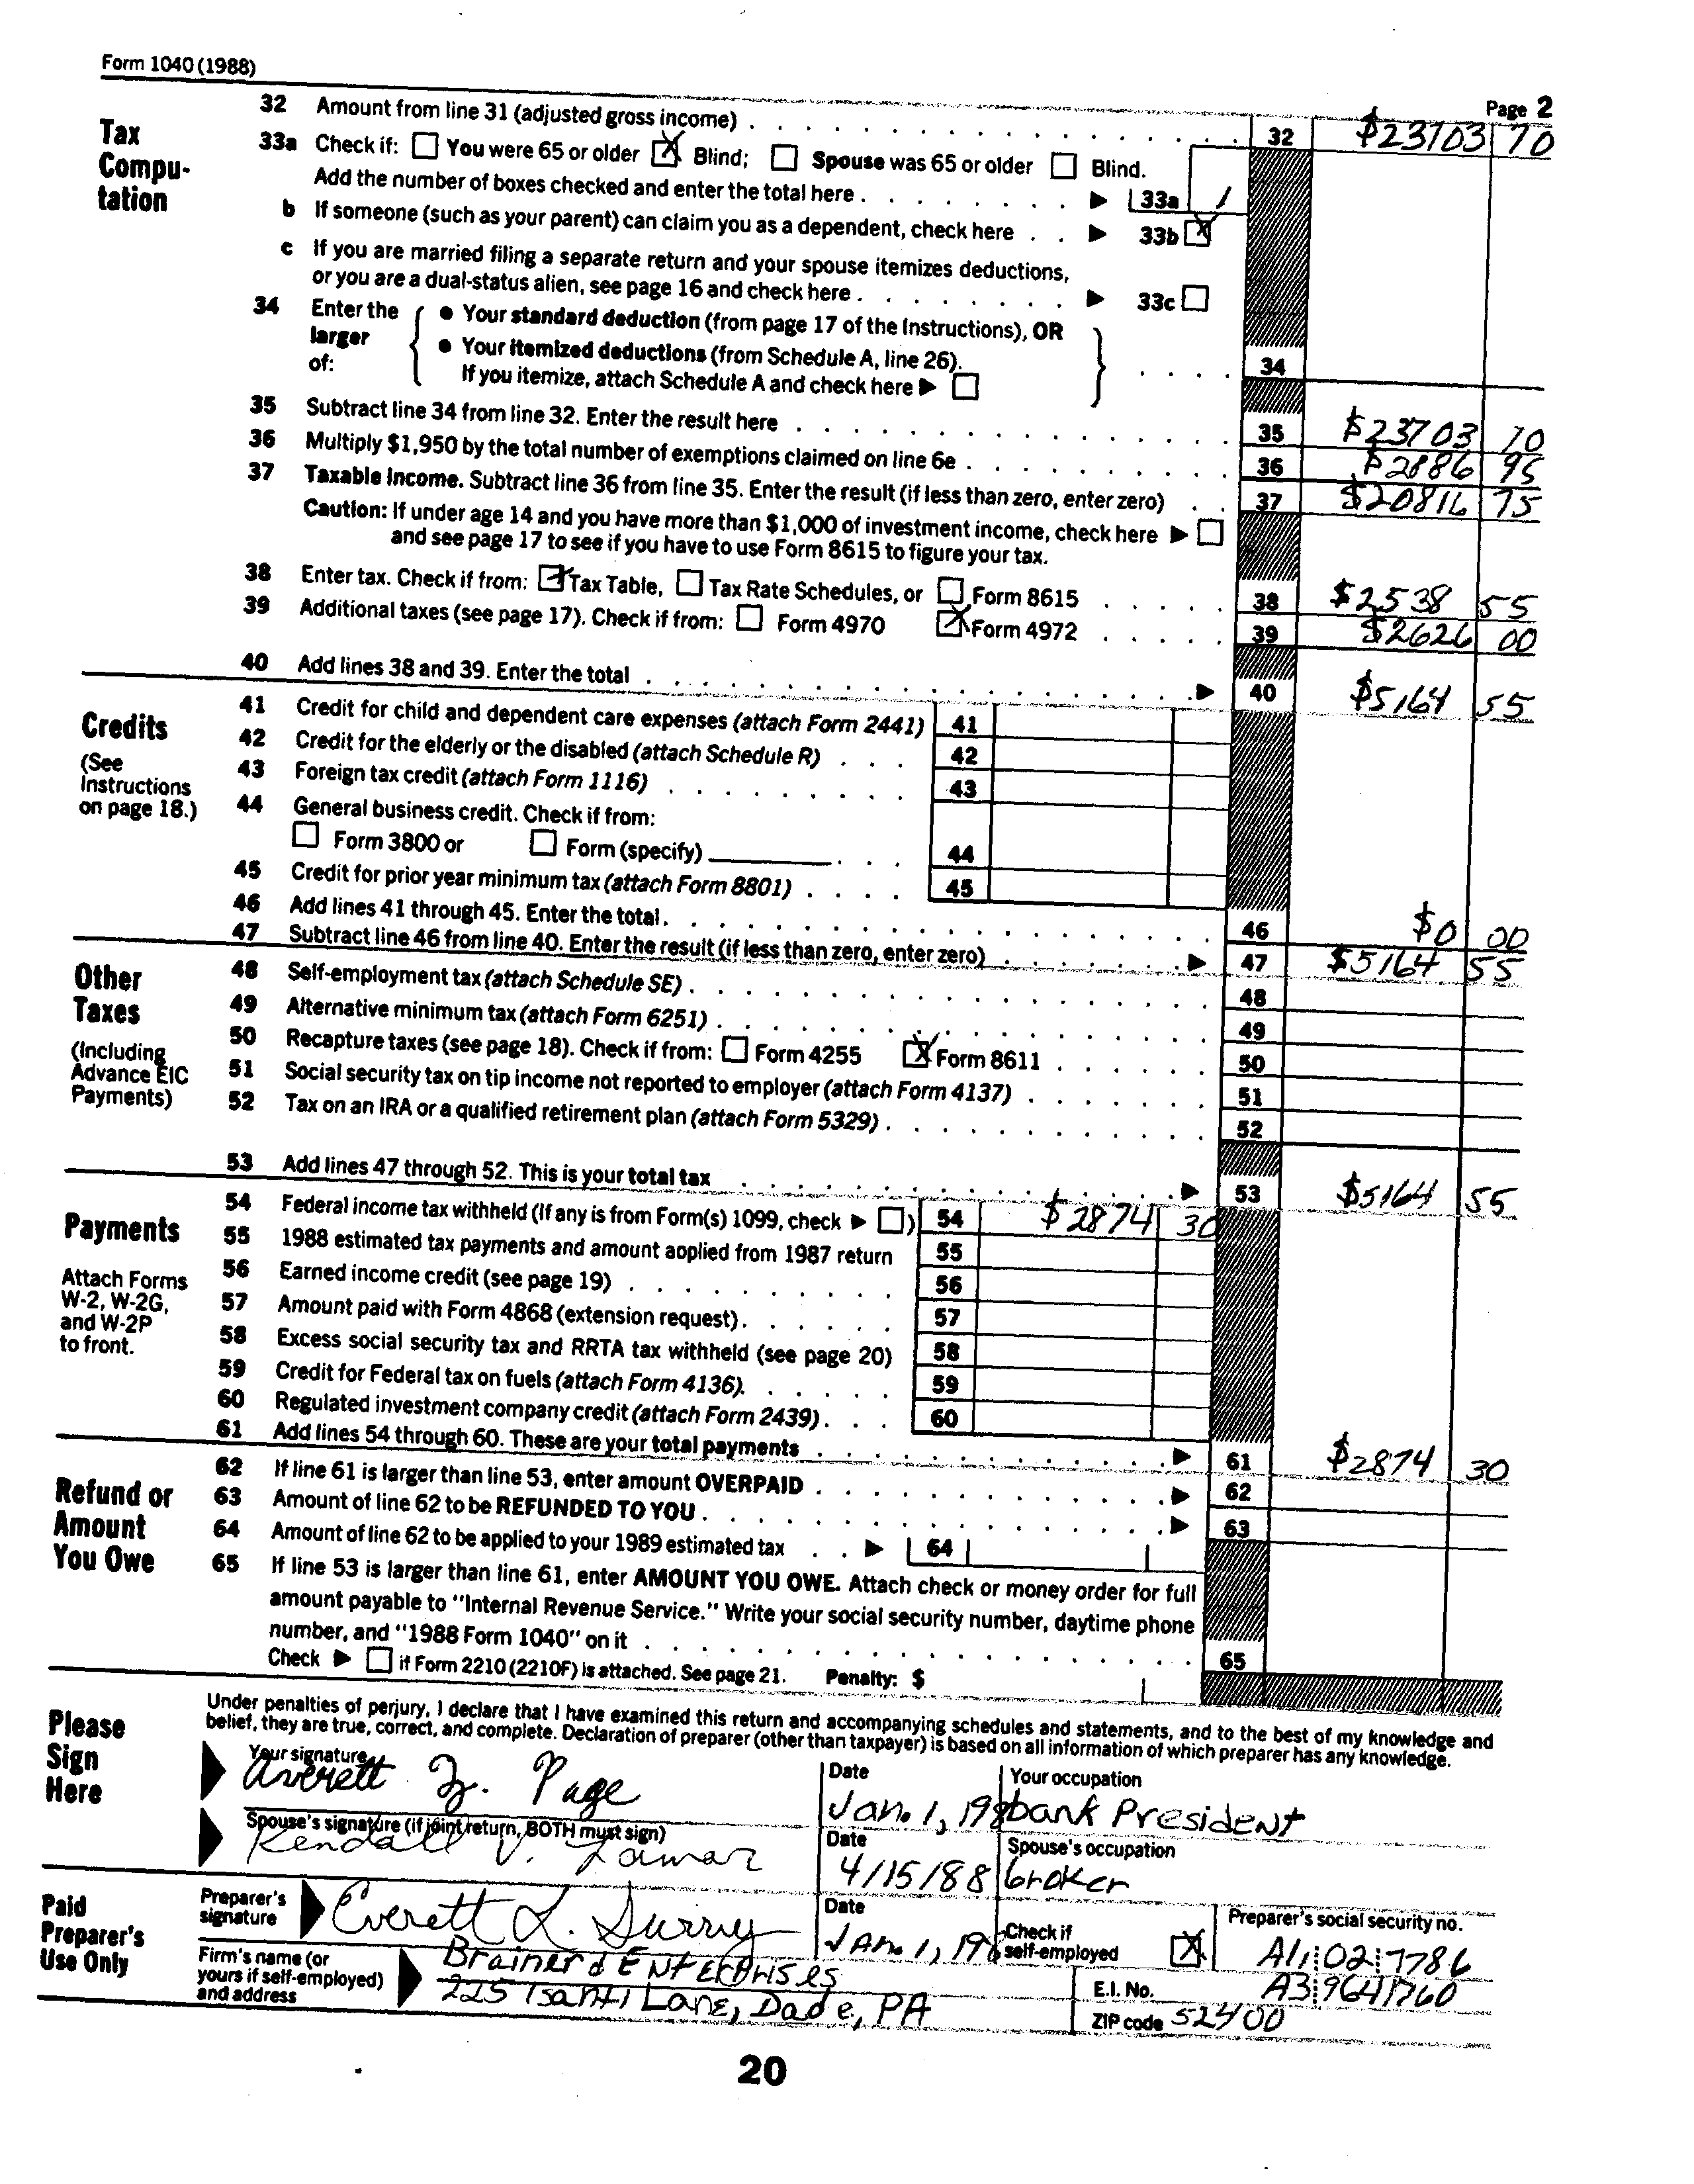 Form 1040 (1988)
Page 2
Tax Compu-tation
32 Amount from line 31 (adjusted gross income) 32 $23703 70
33a Check if: You were 65 or older X Blind; Spouse was 65 or older Blind.
Add the number of boxes checked and enter the total here 33a 1
b If someone (such as your parent) can claim you as a dependent, check here 33b X
c If you are married filing a separate return and your spouse itemizes deductions,
or you are a dual-status alien, see page 16 and check here 33c
34 Enter the larger of:
● Your standard deduction (from page 17 of the Instructions), OR
● Your itemized deductions (from Schedule A, line 26).
If you itemize, attach Schedule A and check here 34
35 Subtract line 34 from line 32. Enter the result here 35 $23703 70
36 Multiply $1,950 by the total number of exemptions claimed on line 6e 36 $2886 95
37 Taxable income. Subtract line 36 from line 35. Enter the result (if less than zero, enter zero) 37 $20816 75
Caution: If under age 14 and you have more than $1,000 of investment income, check here
and see page 17 to see if you have to use Form 8615 to figure your tax.
38 Enter tax. Check if from: X Tax Table, Tax Rate Schedules, or Form 8615 38 $2538 55
39 Additional taxes (see page 17). Check if from: Form 4970 X Form 4972 39 $2626 00
40 Add lines 38 and 39. Enter the total 40 $5164 55
Credits
(See Instructions on page 18.)
41 Credit for child and dependent care expenses (attach Form 2441) 41
42 Credit for the elderly or the disabled (attach Schedule R) 42
43 Foreign tax credit (attach Form 1116) 43
44 General business credit. Check if from:
Form 3800 or Form (specify) 44
45 Credit for prior year minimum tax (attach Form 8801) 45
46 Add lines 41 through 45. Enter the total 46 $0 00
47 Subtract line 46 from line 40. Enter the result (if less than zero, enter zero) 47 $5164 55
Other Taxes
(Including Advance EIC Payments)
48 Self-employment tax (attach Schedule SE) 48
49 Alternative minimum tax (attach Form 6251) 49
50 Recapture taxes (see page 18). Check if from: Form 4255 X Form 8611 50
51 Social security tax on tip income not reported to employer (attach Form 4137) 51
52 Tax on an IRA or a qualified retirement plan (attach Form 5329) 52
53 Add lines 47 through 52. This is your total tax 53 $5164 55
Payments
Attach Forms W-2, W-2G, and W-2P to front.
54 Federal income tax withheld (If any is from Form(s) 1099, check ) 54 $2874 30
55 1988 estimated tax payments and amount aoplied from 1987 return 55
56 Earned income credit (see page 19) 56
57 Amount paid with Form 4868 (extension request) 57
58 Excess social security tax and RRTA tax withheld (see page 20) 58
59 Credit for Federal tax on fuels (attach Form 4136) 59
60 Regulated investment company credit (attach Form 2439) 60
61 Add lines 54 through 60. These are your total payments 61 $2874 30
Refund or Amount You Owe
62 If line 61 is larger than line 53, enter amount OVERPAID 62
63 Amount of line 62 to be REFUNDED TO YOU 63
64 Amount of line 62 to be applied to your 1989 estimated tax 64
65 If line 53 is larger than line 61, enter AMOUNT YOU OWE. Attach check or money order for full
amount payable to "Internal Revenue Service." Write your social security number, daytime phone
number, and "1988 Form 1040" on it 65
Check if Form 2210 (2210F) is attached. See page 21. Penalty: $
Please Sign Here
Under penalties of perjury, I declare that I have examined this return and accompanying schedules and statements, and to the best of my knowledge and
belief, they are true, correct, and complete. Declaration of preparer (other than taxpayer) is based on all information of which preparer has any knowledge.
Your signature Date Your occupation
Averett Page Jan. 1, 198 bank President
Spouse's signature (if joint return, BOTH must sign) Date Spouse's occupation
Kendall V. Lamar 4/15/88 broker
Paid Preparer's Use Only
Preparer's signature Date Check if self-employed X Preparer's social security no.
Everett L. Surry Jan. 1, 198 A11 02 7786
Firm's name (or yours if self-employed) and address
Brainerd ENTErprises E.I. No. A3 9641760
225 Isanti Lane, Dade, PA ZIP code 52400
20